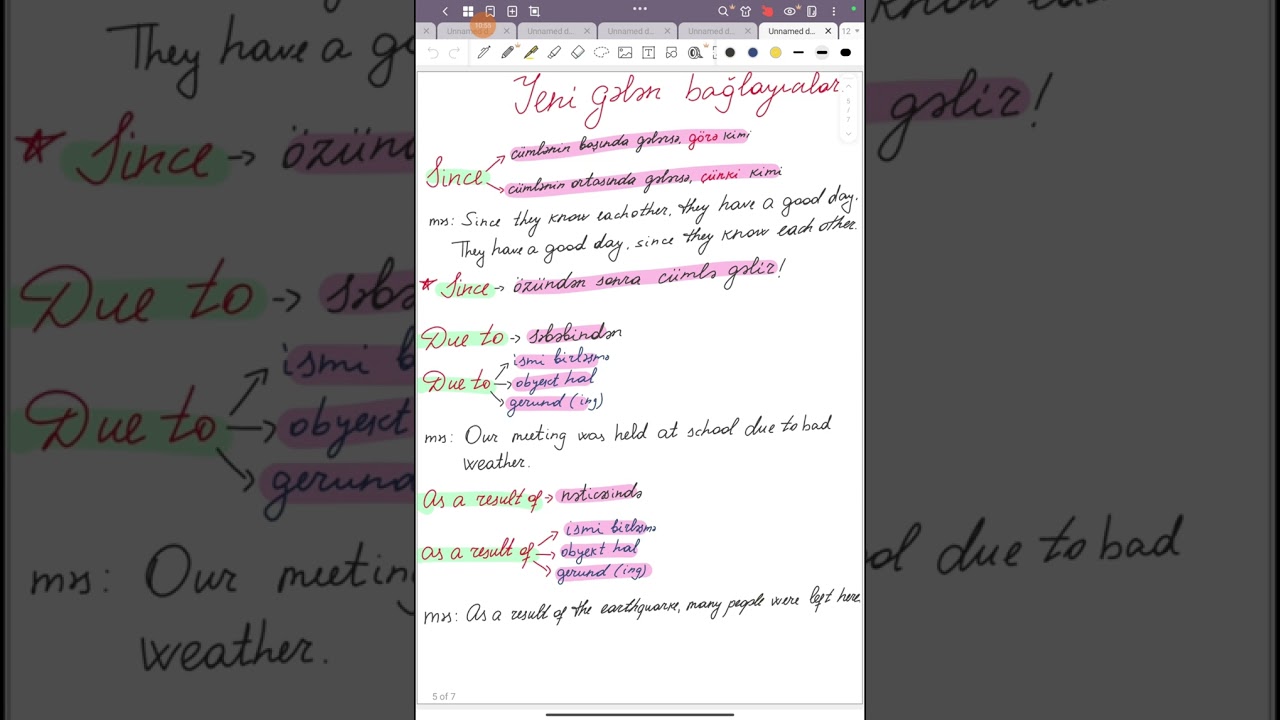 Unnamed d...
Unnamed d...
Unnamed d...
Unnamed d...
Unnamed d...
12
Yeni gələn bağlayıcılar
Since
cümlənin başında gələrsə, görə kimi
cümlənin ortasında gələrsə, çünki kimi
məs: Since they know eachother, they have a good day.
They have a good day, since they know each other.
* Since → özündən sonra cümlə gəlir!
Due to → səbəbindən
Due to
ismi birləşmə
obyekt hal
gerund (ing)
məs: Our meeting was held at school due to bad
weather.
As a result of → nəticəsində
as a result of
ismi birləşmə
obyekt hal
gerund (ing)
məs: As a result of the earthquake, many people were left here.
5 of 7